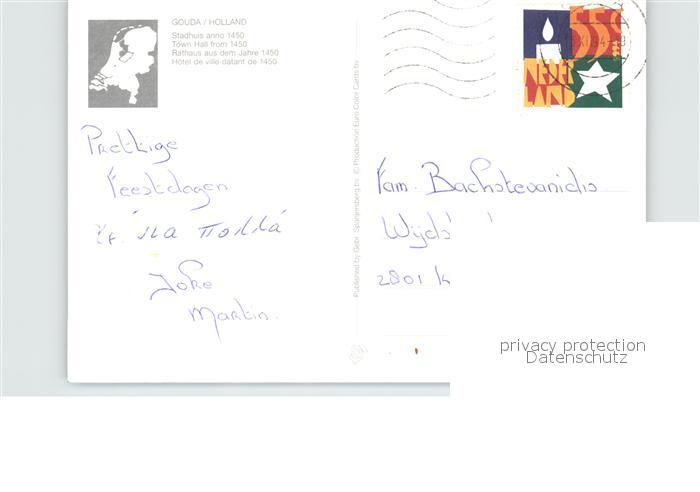 GOUDA / HOLLAND
Stadhuis anno 1450
Town Hall from 1450
Rathaus aus dem Jahre 1450
Hôtel de ville datant de 1450
Prettige
Feestdagen
πολλά
Joke
Martin.
Published by Gebr. Spanjersberg bv. © Production Euro Color Cards bv.
55c
NEDER
LAND
Fam.
2801 K
privacy protection
Datenschutz